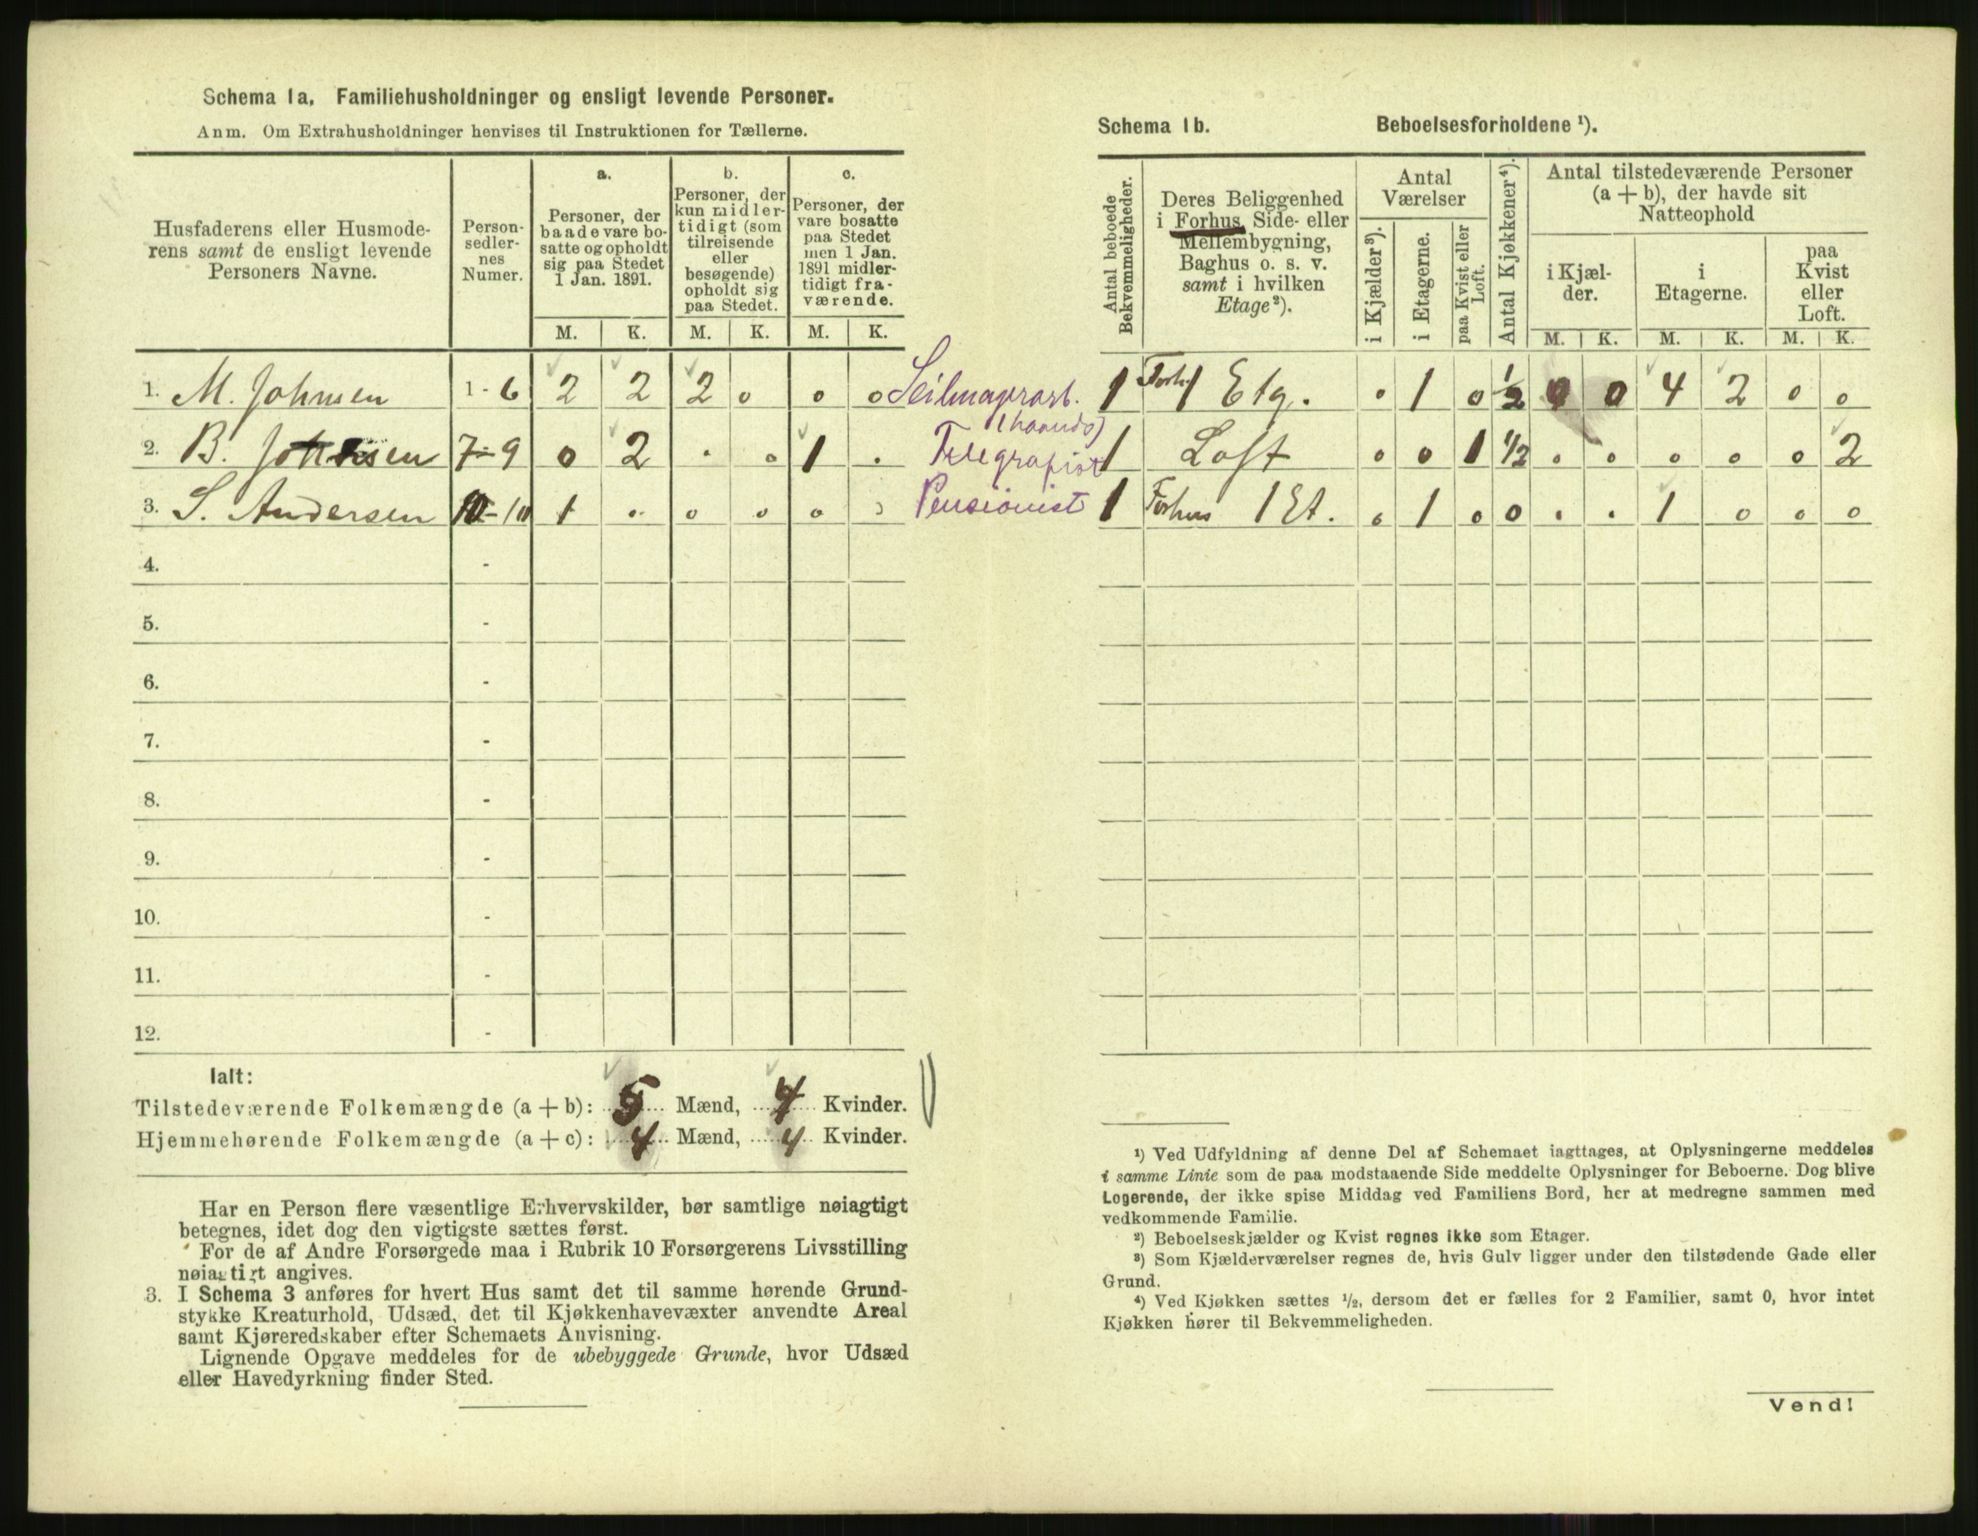 Schema 1a. Familiehusholdninger og ensligt levende Personer.
Anm. Om Extrahusholdninger henvises til Instruktionen for Tællerne.
Husfaderens eller Husmoderens samt de ensligt levende Personers Navne.
Person-
sedler-
nes
Numer.
a.
Personer, der
baade vare bo-
satte og opholdt
sig paa Stedet
1 Jan. 1891.
b.
Personer, der
kun midler-
tidigt (som
tilreisende
eller
besøgende)
opholdt sig
paa Stedet.
c.
Personer, der
vare bosatte
paa Stedet
men 1 Jan.
1891 midler-
tidigt fra-
værende.
M. K. M. K. M. K.
1. M. Johnsen 1 - 6 2 2 2 0 0 0 Seilmagerarb.
(haands)
2. B. Johnsen 7 - 9 0 2 . 0 1 . Telegrafist
3. S. Andersen 10 - 10 1 . 0 0 0 0 Pensionist
4. -
5. -
6. -
7. -
8. -
9. -
10. -
11. -
12. -
Ialt:
Tilstedeværende Folkemængde (a + b): 5 Mænd, 4 Kvinder.
Hjemmehørende Folkemængde (a + c): 4 Mænd, 4 Kvinder.
Har en Person flere væsentlige Erhvervskilder, bør samtlige nøiagtigt
betegnes, idet dog den vigtigste sættes først.
For de af Andre Forsørgede maa i Rubrik 10 Forsørgerens Livsstilling
nøiagtigt angives.
3. I Schema 3 anføres for hvert Hus samt det til samme hørende Grund-
stykke Kreaturhold, Udsæd, det til Kjøkkenhavevæxter anvendte Areal
samt Kjøreredskaber efter Schemaets Anvisning.
Lignende Opgave meddeles for de ubebyggede Grunde, hvor Udsæd
eller Havedyrkning finder Sted.
Schema 1b. Beboelsesforholdene ¹).
Antal beboede
Bekvemmeligheder.
Deres Beliggenhed
i Forhus, Side- eller
Mellembygning,
Baghus o. s. v.
samt i hvilken
Etage²).
Antal
Værelser
i Kjælder³).
i Etagerne.
paa Kvist eller
Loft.
Antal Kjøkkener⁴).
Antal tilstedeværende Personer
(a + b), der havde sit
Natteophold
i Kjæl-
der.
i
Etagerne.
paa
Kvist
eller
Loft.
M. K. M. K. M. K.
1 Forh. 1 Etg. 0 1 0 1/2 0 0 4 2 0 0
1 Loft 0 0 1 1/2 . . 0 0 0 2
1 Forhus 1 Et. 0 1 0 0 . . 1 0 0 0
¹) Ved Udfyldning af denne Del af Schemaet iagttages, at Oplysningerne meddeles
i samme Linie som de paa modstaaende Side meddelte Oplysninger for Beboerne. Dog blive
Logerende, der ikke spise Middag ved Familiens Bord, her at medregne sammen med
vedkommende Familie.
²) Beboelseskjælder og Kvist regnes ikke som Etager.
³) Som Kjælderværelser regnes de, hvis Gulv ligger under den tilstødende Gade eller
Grund.
⁴) Ved Kjøkken sættes ½, dersom det er fælles for 2 Familier, samt 0, hvor intet
Kjøkken hører til Bekvemmeligheden.
Vend!